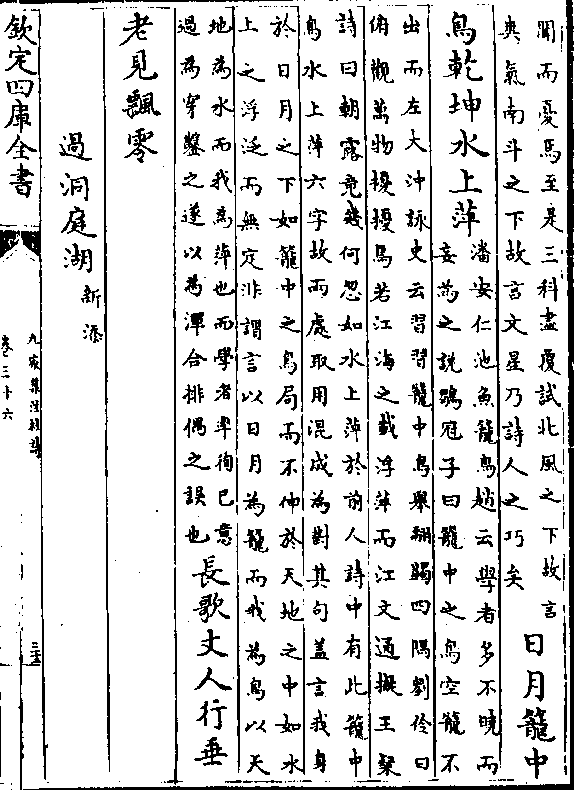 聞而憂焉至是三科盡覆試北風之下故言
爽氣南斗之下故言文星乃詩人之巧矣
日月籠中
鳥乾坤水上萍
潘安仁池魚籠鳥趙云學者多不曉而
妄為之說鶡冠子曰籠中之鳥空籠不
出而左大沖詠史云習習籠中鳥舉翮觸四隅劉伶曰
俯觀萬物擾擾焉若江海之載浮萍而江文通擬王粲
詩曰朝露竟幾何忽如水上萍於前人詩中有此籠中
鳥水上萍六字故兩處取用混成為對其句蓋言我身
於日月之下如籠中之鳥局而不伸於天地之中如水
上之浮泛而無定非謂言以日月為籠而我為鳥以天
地為水而我為萍也而學者率徇已意
過為穿鑿之遂以為渾合排偶之誤也
長歌丈人行垂
老見飄零
過洞庭湖
新添
欽定四庫全書
九家集注杜詩
卷三十六